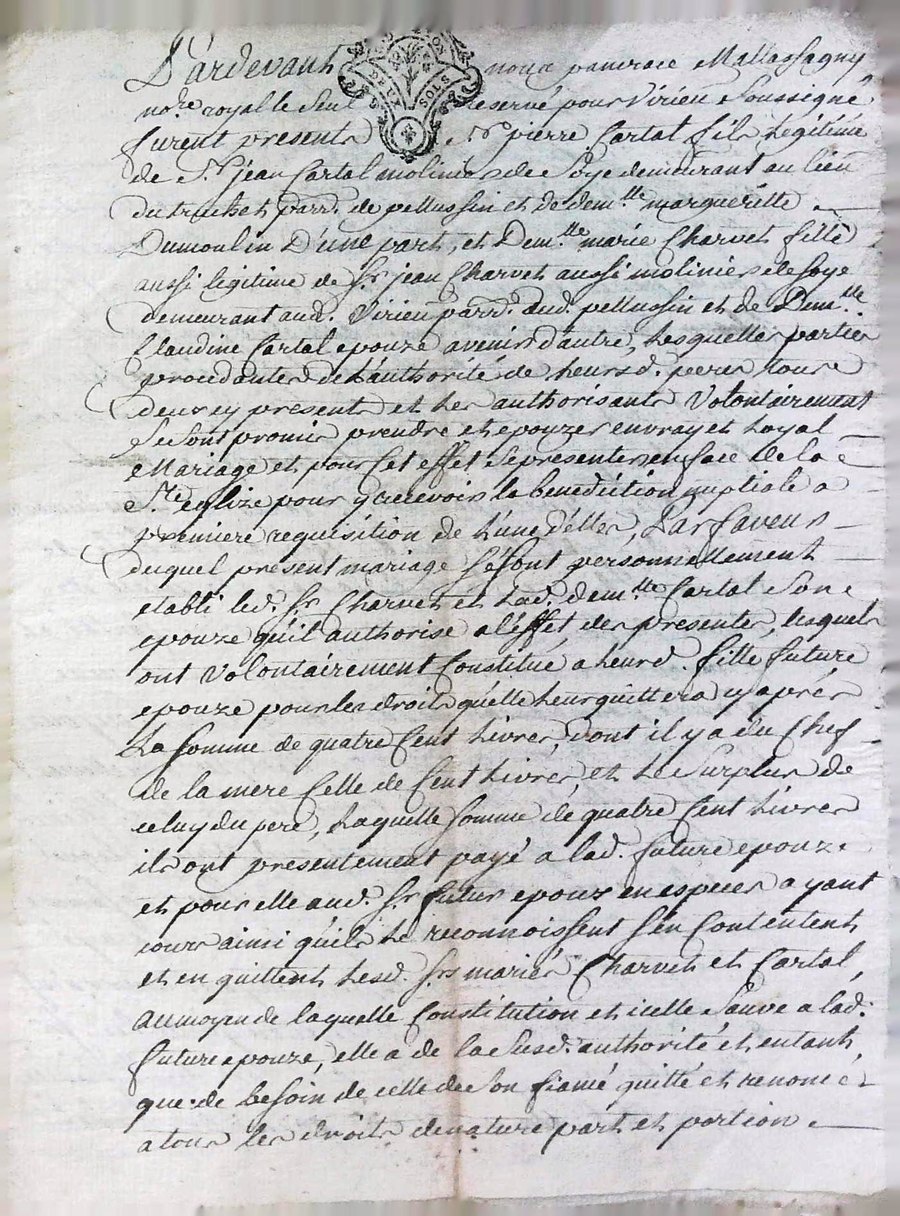 Pardevant nous pancrace Mallassagny
nore. royal le seul reservé pour Virieu soussigné
furent presents sr. pierre Cartal fils Legitime
de Sr. jean Cartal molinier de Soye demeurant au lieu
du parr. de pellussin et de demlle margueritte
Dumoulin D'une part, et Demlle marie Charvet fille
aussi legitime de Sr. jean Charvet aussi molinier de soye
demeurant aud. Virieu parr. dud. pellussin et de Demlle
Claudine Cartal epouze avenir d'autre, Lesquelles parties
procedantes de L'authorité de Leursd. peres tous
deux cy presents et Les authorisants Volontairement
Se sont promis prendre et epouzer en vray et Loyal
Mariage et pour Cet effet se presenter en face de la
Ste eglize pour y recevoir la benediction nuptiale a
premiere requisition de L'une d'elles, En faveur
duquel present mariage se sont personnellement
etabli led. Sr. Charvet et Lad. demlle Cartal Son
epouze qu'il authorise a l'effet des presentes, lesquels
ont Volontairement Constitué a leurd. fille future
epouze pour les droits qu'elle Leur quittera cy aprés
La somme de quatre Cent Livres, dont il y a du Chef
de la mere Celle de Cent Livres, et Le Surplus de
celuy du pere, Laquelle somme de quatre Cent Livres
ils ont presentement payé a lad. future epouze
et pour elle aud. Sr. futur epoux en especes ayant
cours ainsi qu'ils Le reconnoissent s'en Contentent
et en quittent Lesd. Srs mariés Charvet et Cartal,
au moyen de laquelle Constitution et icelle Sauve a lad.
future epouze, elle a de la susd. authorité et entant
que de besoin de celle de Son fiancé quitté et renoncé
a tous les droits de nature part et portion